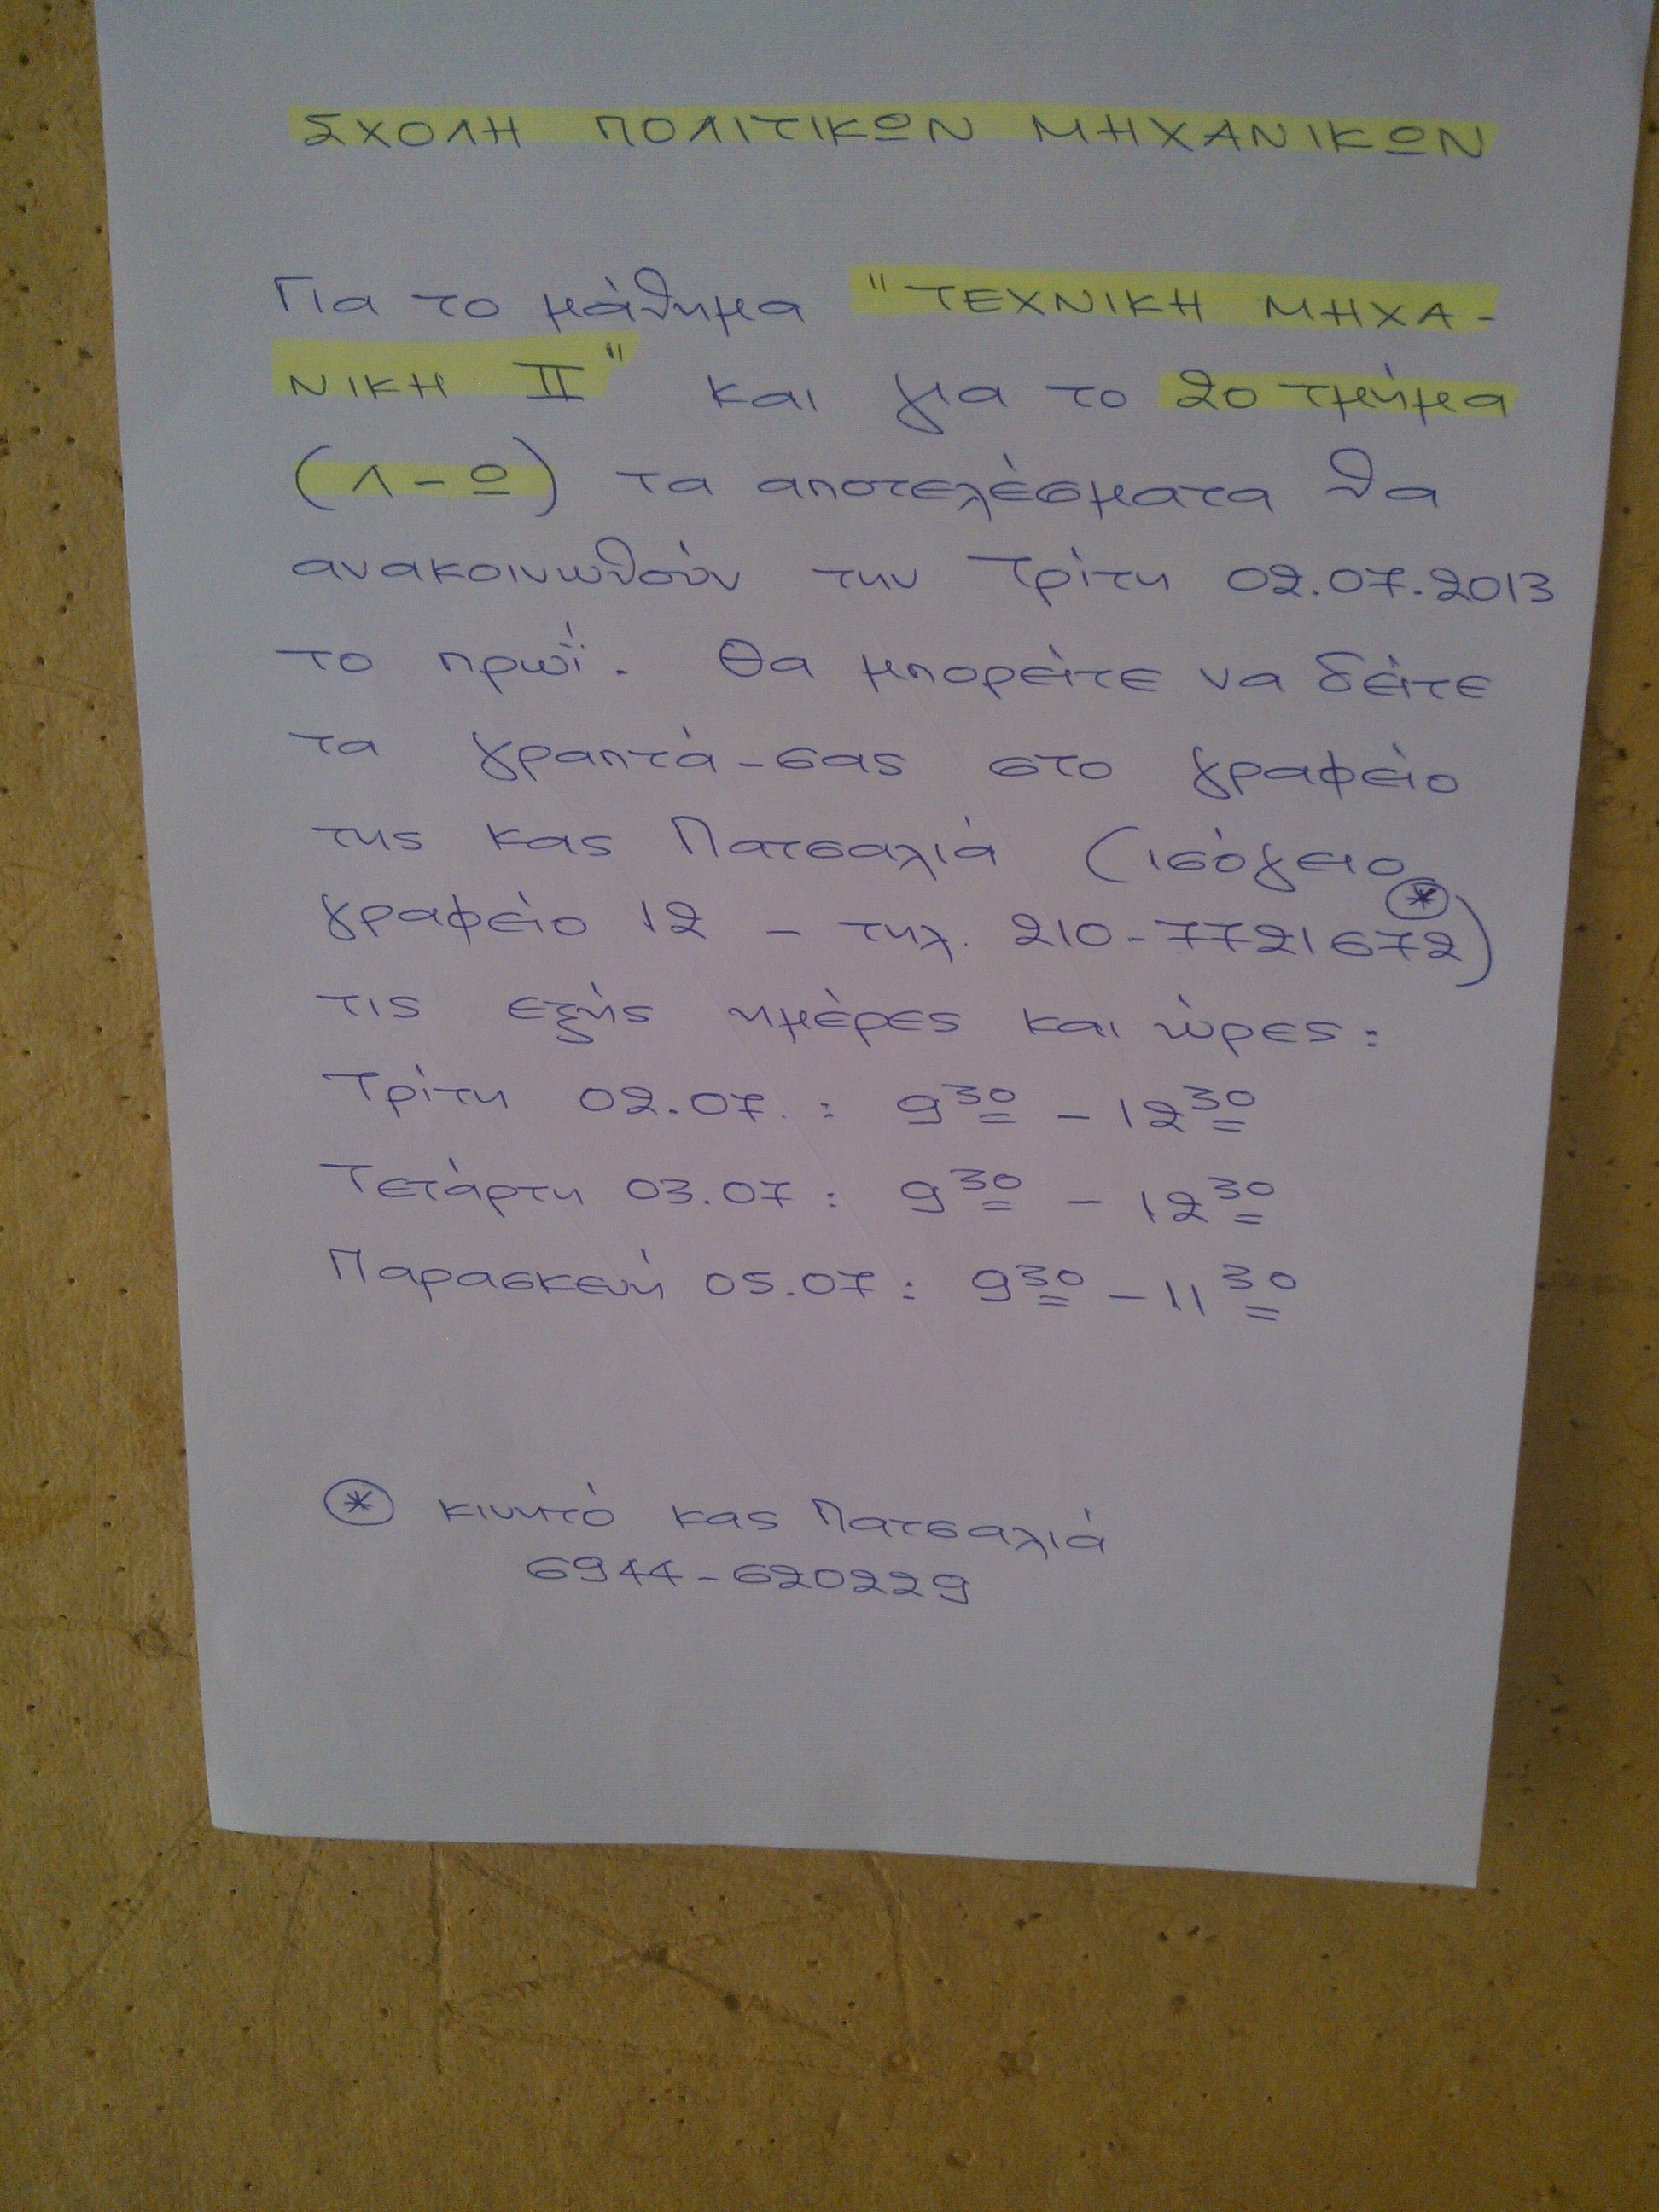 ΣΧΟΛΗ ΠΟΛΙΤΙΚΩΝ ΜΗΧΑΝΙΚΩΝ
Για το μάθημα "ΤΕΧΝΙΚΗ ΜΗΧΑ-
ΝΙΚΗ ΙΙ" και για το 2ο τμήμα
(Λ-Ω) τα αποτελέσματα θα
ανακοινωθούν την Τρίτη 02.07.2013
το πρωΐ. Θα μπορείτε να δείτε
τα γραπτά-σας στο γραφείο
της κας Πατσαλιά (ισόγειο
γραφείο 12 - τηλ. 210-7721672 *)
τις εξής ημέρες και ώρες:
Τρίτη 02.07. : 9 30 - 12 30
Τετάρτη 03.07 : 9 30 - 12 30
Παρασκευή 05.07 : 9 30 - 11 30
* κινητό κας Πατσαλιά
6944-620229